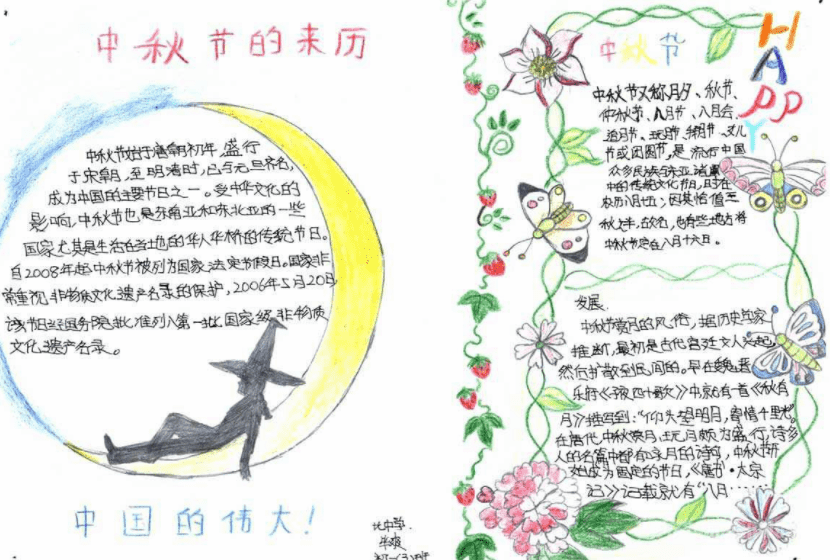 中秋节的来历
中秋节始于唐朝初年，盛行
于宋朝，至明清时，已与元旦齐名，
成为中国的主要节日之一。受中华文化的
影响，中秋节也是东南亚和东北亚的一些
国家尤其是生活在当地的华人华侨的传统节日。
自2008年起中秋节被列为国家法定节假日。国家非
常重视非物质文化遗产名录的保护，2006年5月20日，
该节日经国务院批准列入第一批国家级非物质
文化遗产名录。
中国的伟大！
中秋节
HAPPY
中秋节又称月夕、秋节、
仲秋节、八月节、八月会、
追月节、玩月节、拜月节、女儿
节或团圆节，是流行中国
众多民族与东亚诸国
中的传统文化节日，时在
农历八月十五；因其恰值三
秋之半，故名，也有些地方将
中秋节定在八月十六日。
发展：
中秋节赏月的风俗，据历史学家
推断，最初是古代宫廷文人兴起，
然后扩散到民间的。早在魏晋
乐府《子夜四十歌》中就有一首《秋有
月》描写到：“仰头望明月，寄情千里光”。
在唐代，中秋赏月、玩月颇为盛行，许多
人的名篇中都有咏月的诗句，中秋节开
始成为固定的节日，《唐书·太宗
记》记载就有“八月……